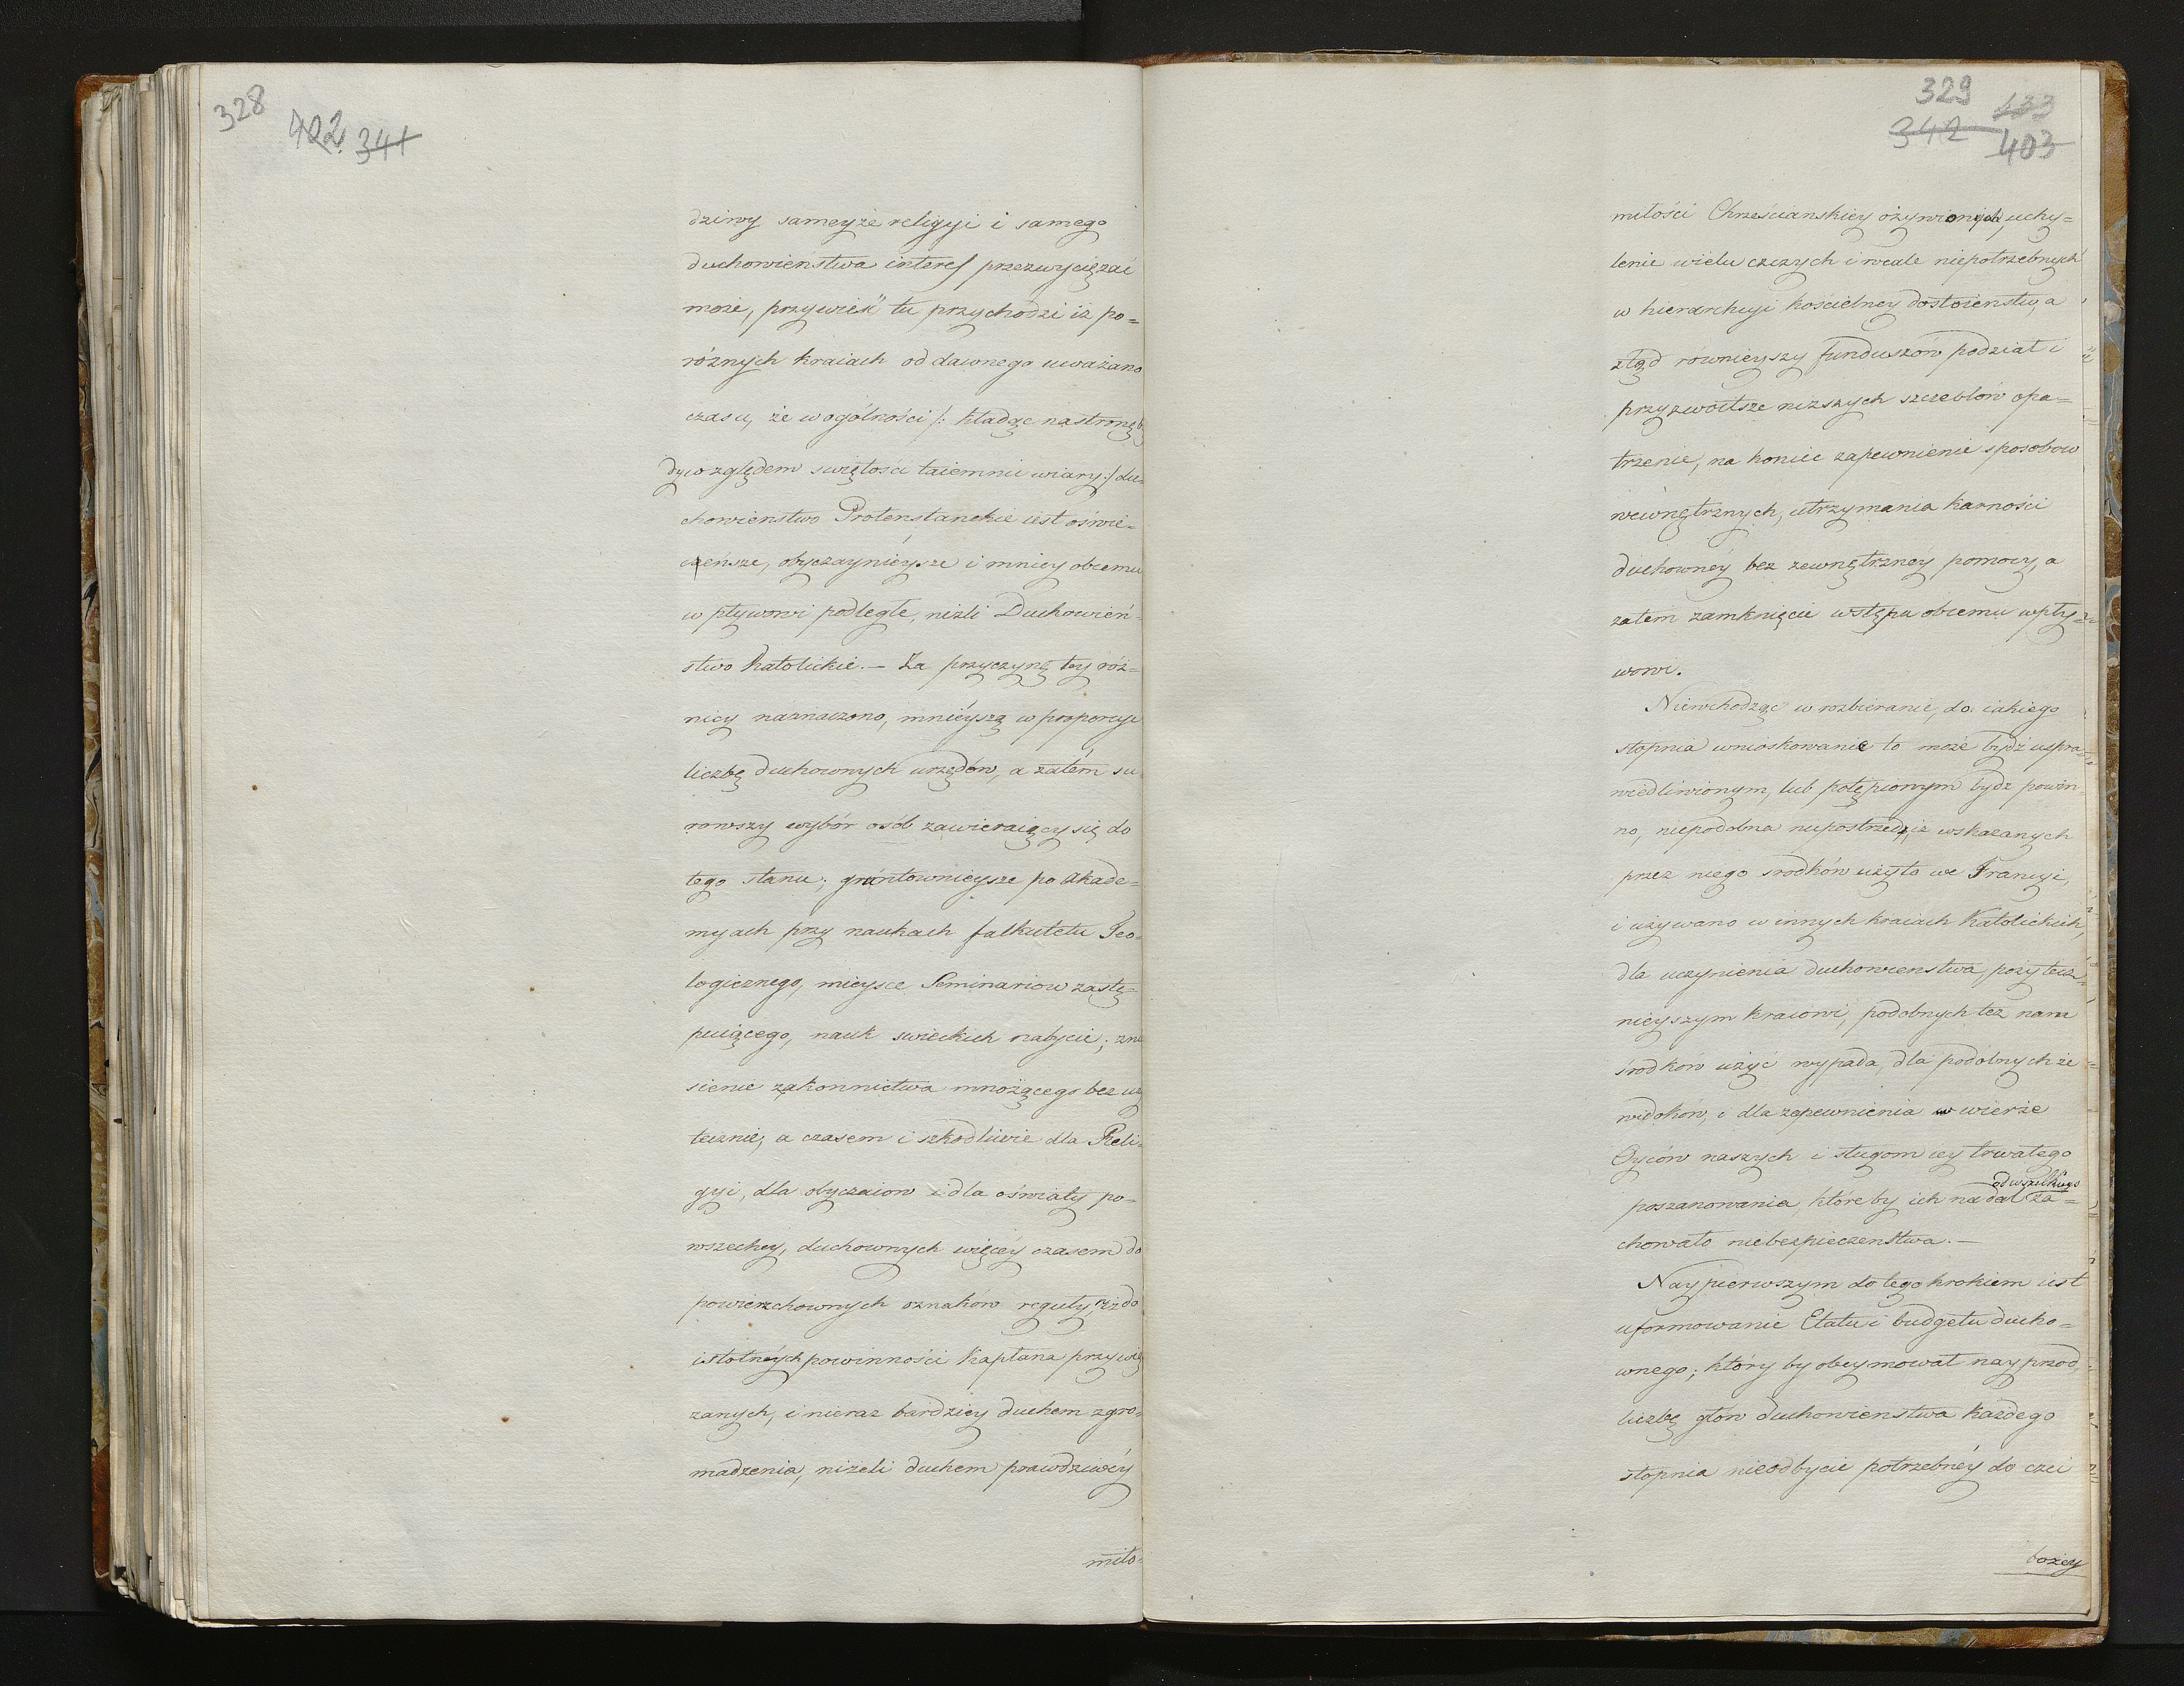 328
402 341
dziwy sameyże religyi i samego
duchowieństwa interes przezwyciężać
może, przywieść tu przychodzi iż po=
różnych kraiach od dawnego uważano
czasu, że wogólności /: kładąc nastronę b
dy względem swiętości taiemnic wiary :/ du=
chowienstwo Protenstanckie iest oświe=
czeńsze, obyczaynieysze i mniey obcemu
wpływowi podległe, niżli Duchowień=
stwo Katolickie. — Za przyczynę tey róż=
nicy naznaczono, mnieyszą w proporcyi
liczbę duchownych urzędów, a zatém su
rowszy wybór osób zawieraiący się do
tego stanu; gruntownieysze po Akade=
myach przy naukach falkutetu Teo=
logicznego, mieysce Seminariow zastę=
puiącego, nauk swieckich nabycie; znie
sienie zakonnictwa mnożącego bez uż
tecznie, a czasem i szkodliwie dla Reli=
gyi, dla obyczaiow i dla oświaty po=
wszechey, duchownych więcéy czasem do
powierzchownych oznaków reguły, niż do
istotnéych powinności Kapłana przywią
zanych, i nieraz bardziey duchem zgro=
madzenia, niżeli duchem prawdziwéy
miło=
329 133
342 403
miłości Chrześcianskiey ożywionych, uchy=
lenie wielu czczych i wcale niepotrzebnych
w hierarchyi kościelney dostoienstw, a
ztąd równieyszy funduszów podział i
przyzwoitsze niższych szczeblów opa=
trzenie, na koniec zapewnienie sposobow
wewnętrznych, utrzymania karności
duchownéy bez zewnętrznéy pomocy, a
zatem zamknięcie wstępu obcemu wpły=
wowi.
Niewchodząc w rozbieranie, do iakiego
stopnia wnioskowanie to może bydź uspra=
wiedliwionym, lub potępionym bydz powin
no, niepodobna niepostrzedz, iż wskazanych
przez niego srodków użyto we Francyi,
i używano w innych kraiach Katolickich,
dla uczynienia duchowienstwa pożytecz=
nieyszym kraiowi, podobnych też nam
środków użyć wypada, dla podobnychże
widoków, i dla zapewnienia w wierze
Oyców naszych i sługom iey trwałego
poszanowania, któreby ich nadal od wszelkiego za=
chowało niebezpieczenstwa. —
Naypierwszym do tego krokiem iest
uformowanie Etatu i budgetu ducho=
wnego; któryby obeymował nayprzod,
liczbę głów duchowienstwa każdego
stopnia nieodbycie potrzebnéy do czci
bożey